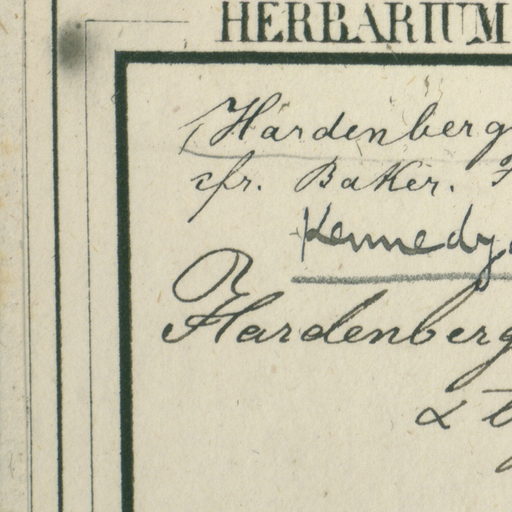 HERBARIUM
Hardenberg
cfr. Baker.
Kennedy
Hardenberg
α